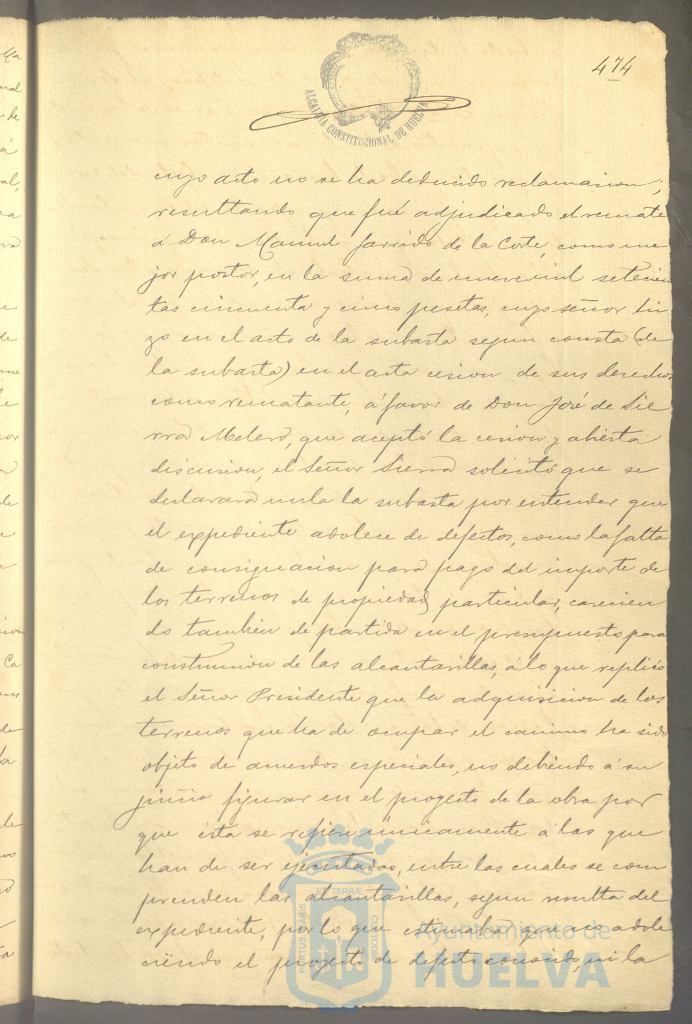 474
ALCALDIA CONSTITUCIONAL DE HUELVA
cuyo acto no se ha deducido reclamacion;
resultando que fué adjudicado el remate
á Don Manuel Garrido de la Corte, como me
jor postor, en la suma de nueve mil setecien
tas cincuenta y cinco pesetas, cuyo señor hi
zo en el acto de la subasta segun consta (de
la subasta) en el acta cesion de sus derechos
como rematante, á favor de Don José de Sie
rra Melero, que aceptó la cesion y abierta
discusion, el Señor Sierra solicitó que se
declarara nula la subasta por entender que
el expediente adolece de defectos, como la falta
de consignacion para pago del importe de
los terrenos de propiedad particular, carecien
do tambien de partida en el presupuesto para
construccion de las alcantarillas, á lo que replicó
el Señor Presidente que la adquisicion de los
terrenos que ha de ocupar el camino ha sido
objeto de acuerdos especiales, no debiendo á su
juicio figurar en el proyecto de la obra por
que ésta se refiere unicamente á las que
han de ser ejecutadas, entre las cuales se com
prenden las alcantarillas, segun resulta del
expediente, por lo que estimaba que no adole
ciendo el proyecto de defecto conocido, ni la
PORTUS MARIS ET TERRÆ CUSTODIA
Ayuntamiento de
HUELVA